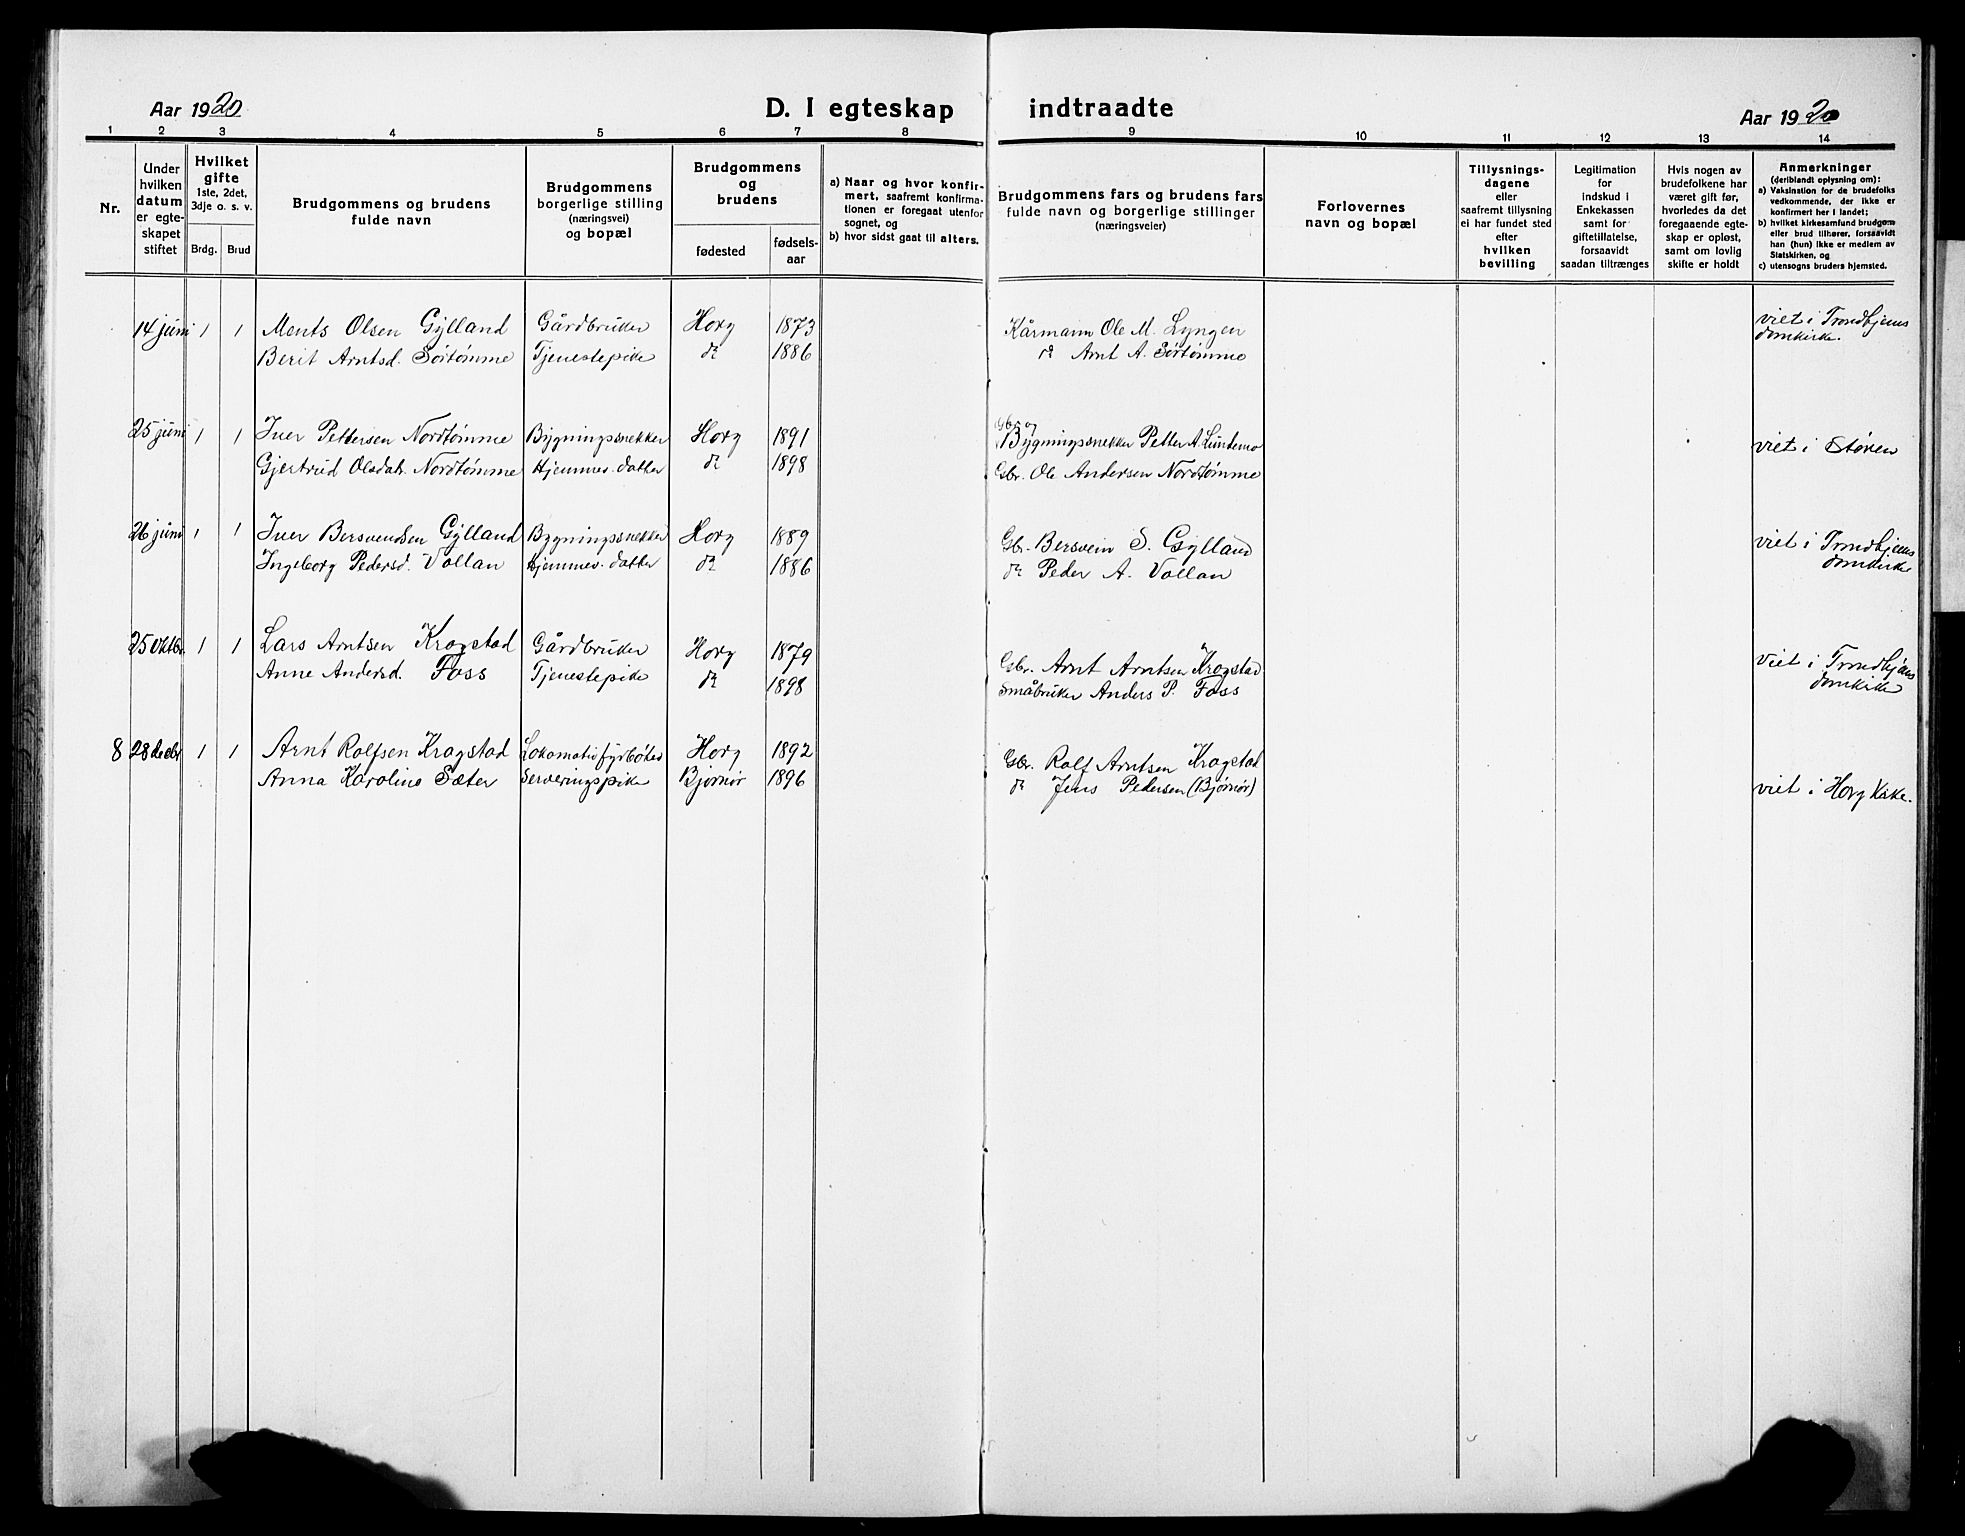 Aar 1920
D. I egteskap indtraadte
Aar 1920
1 2 3 4 5 6 7 8 9 10 11 12 13 14
Nr.
Under
hvilken
datum
er egte-
skapet
stiftet
Hvilket
gifte
1ste, 2det,
3dje o. s. v.
Brdg. Brud
Brudgommens og brudens
fulde navn
Brudgommens
borgerlige stilling
(næringsvei)
og bopæl
Brudgommens
og
brudens
fødested
fødsels-
aar
a) Naar og hvor konfir-
mert, saafremt konfirma-
tionen er foregaat utenfor
sognet, og
b) hvor sidst gaat til alters.
Brudgommens fars og brudens fars
fulde navn og borgerlige stillinger
(næringsveier)
Forlovernes
navn og bopæl
Tillysnings-
dagene
eller
saafremt tillysning
ei har fundet sted
efter
hvilken
bevilling
Legitimation
for
indskud i
Enkekassen
samt for
giftetillatelse,
forsaavidt
saadan tiltrænges
Hvis nogen av
brudefolkene har
været gift før,
hvorledes da det
foregaaende egte-
skap er opløst,
samt om lovlig
skifte er holdt
Anmerkninger
(deriblandt oplysning om):
a) Vaksination for de brudefolks
vedkommende, der ikke er
konfirmert her i landet;
b) hvilket kirkesamfund brudgom
eller brud tilhører, forsaavidt
han (hun) ikke er medlem av
Statskirken, og
c) utensogns bruders hjemsted.
14 juni 1 1 Ments Olsen Gylland Gårdbruker Horg 1873 Kårmann Ole M. Lyngen viet i Trondhjems
domkirke.
Berit Arntsd. Sørtømme Tjenestepike do 1886 do Arnt A. Sørtømme
25 juni 1 1 Iver Pettersen Nordtømme Bygningssnekker Horg 1891 Gbr. og
Bygningssnekker Petter A. Lundemo
Gjertrud Olsdatr. Nordtømme Hjemmev. datter do 1898 Gbr. Ole Andersen Nordtømme viet i Støren
26 juni 1 1 Iver Bersvendsen Gylland Bygningssnekker Horg 1889 Gbr. Bersvein S. Gylland viet i Trondhjems
domkirke
Ingeborg Pedersd. Vollan Hjemmev. datter do 1886 do Peder A. Vollan
25 oktbr. 1 1 Lars Arntsen Krogstad Gårdbruker Horg 1879 Gbr. Arnt Arntsen Krogstad Viet i Trondhjems
domkirke
Anne Andersd. Foss Tjenestepike do 1898 Småbruker Anders P. Foss
8 28 decbr 1 1 Arnt Rolfsen Krogstad Lokomotivfyrbøter Horg 1892 Gbr. Rolf Arntsen Krogstad
Anna Karoline Sæter Serveringspike Bjørnør 1896 do Jens Pedersen (Bjørnør) viet i Horg Kirke.